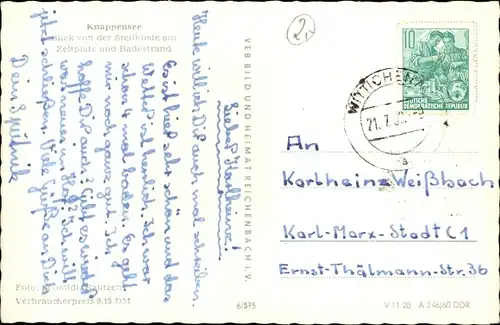 Knappensee
Blick von der Steilküste am
Zeltplatz und Badestrand
2
Lieber Karlheinz!
Heute will ich Dir auch mal schreiben.
Es ist hier sehr schön und das
Wetter ist herrlich. Ich war
schon 4 mal baden. Es geht
mir noch ganz gut. Ich
hoffe Dir auch? Gibt es wieder
was neues im Ich will
jetzt schließen. Viele Grüße an Dich
Dein
VEB BILD UND HEIMAT REICHENBACH I. V.
10
DEUTSCHE
DEMOKRATISCHE REPUBLIK
WITTICHENAU
21.7.
a
An
Karlheinz Weißbach
Karl-Marx-Stadt C1
Ernst-Thälmann-Str. 36
Foto: Bautzen
Verbraucherpreis 0,15 DM
6/575
V 11 28 A 246/60 DDR